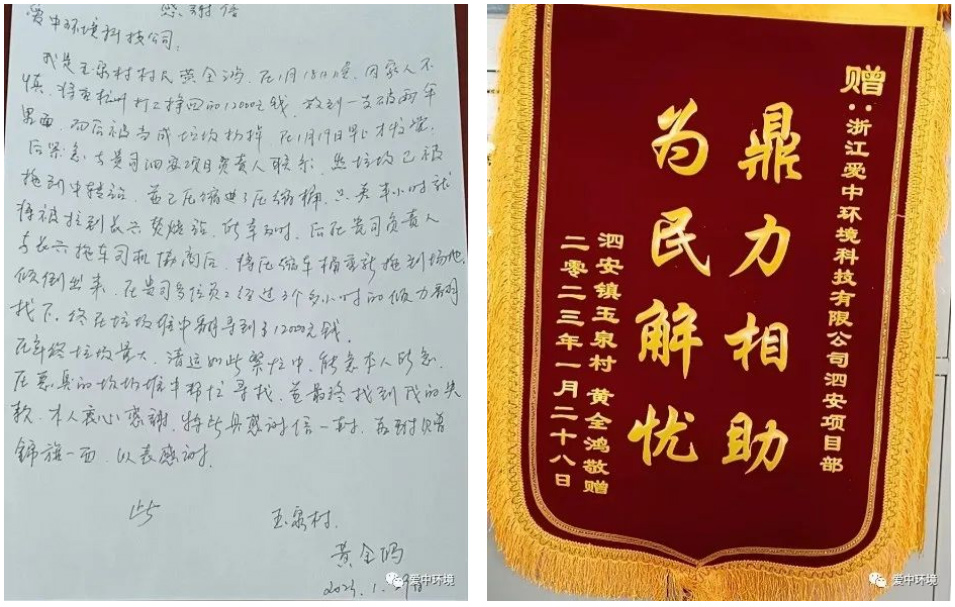 感谢信
爱中环境科技公司:
我是玉泉村村民黄全鸿,在1月18日晚,因家人不
慎,将在杭州打工挣回的12000元钱,放到一支破雨伞
里面,而后被当成垃圾扔掉,在1月19日早上才发觉,
后紧急与贵司泗安项目负责人联系,然垃圾已被
拖到中转站,并已压缩进了压缩桶,只差半小时就
将被拉到长兴焚烧站,
后在贵司负责人
与长兴拖车司机协商后,将压缩车桶重新拖到场地,
倾倒出来,在贵司多位员工经过3个多小时的倾力翻
找下,终在垃圾堆中翻寻到了12000元钱
在年终垃圾量大,清运如此繁忙中,能急本人所急,
在恶臭的垃圾堆中帮忙寻找,并最终找到我的失
款,本人衷心感谢,特此具感谢信一封,
赠
锦旗一面,以表感谢.
此
玉泉村.
黄全鸿
爱中环境
赠:浙江爱中环境科技有限公司泗安项目部
鼎力相助
为民解忧
泗安镇玉泉村 黄全鸿敬赠
二零二三年一月二十八日
爱中环境